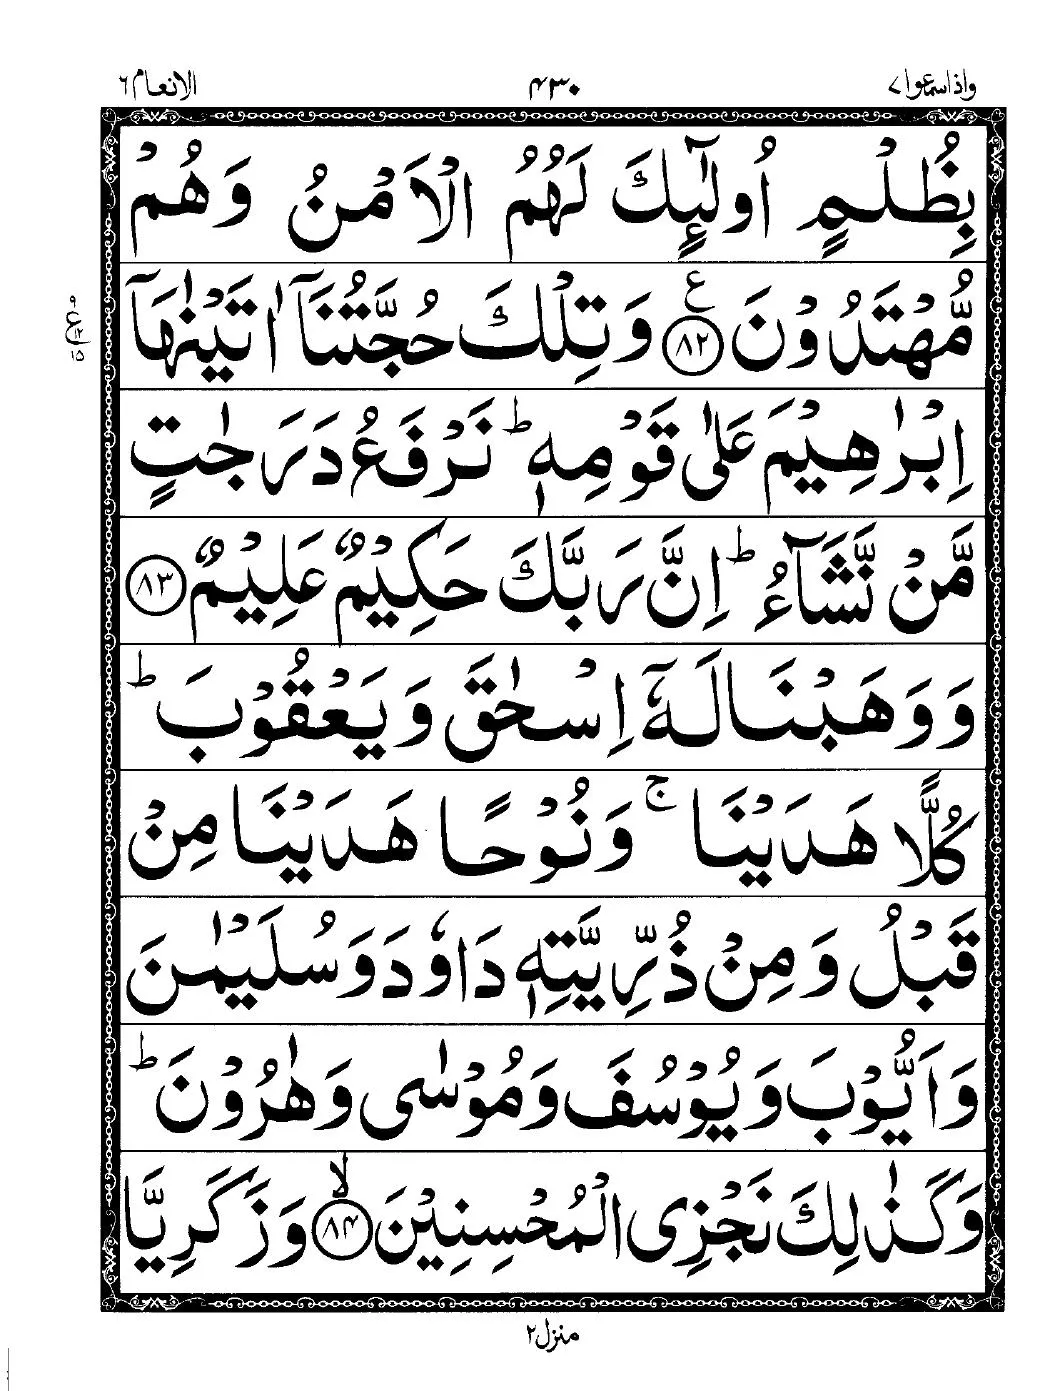 واذاسمعوا ٧ ۴۳۰ الانعام ٦
بِظُلْمٍ اُولٰٓئِكَ لَهُمُ الْاَمْنُ وَهُمْ
مُّهْتَدُوْنَ ﴿۸۲﴾ ع وَتِلْكَ حُجَّتُنَاۤ اٰتَيْنٰهَاۤ
۹
ع
۱۴
۱۵
اِبْرٰهِيْمَ عَلٰى قَوْمِهٖ ؕ نَرْفَعُ دَرَجٰتٍ
مَّنْ نَّشَآءُ ؕ اِنَّ رَبَّكَ حَكِيْمٌ عَلِيْمٌ ﴿۸۳﴾
وَوَهَبْنَا لَهٗۤ اِسْحٰقَ وَيَعْقُوْبَ ؕ
كُلًّا هَدَيْنَا ۚ وَنُوْحًا هَدَيْنَا مِنْ
قَبْلُ وَمِنْ ذُرِّيَّتِهٖ دَاوٗدَ وَسُلَيْمٰنَ
وَاَيُّوْبَ وَيُوْسُفَ وَمُوْسٰى وَهٰرُوْنَ ؕ
وَكَذٰلِكَ نَجْزِى الْمُحْسِنِيْنَ ﴿۸۴﴾ ۙ وَزَكَرِيَّا
منزل ۲